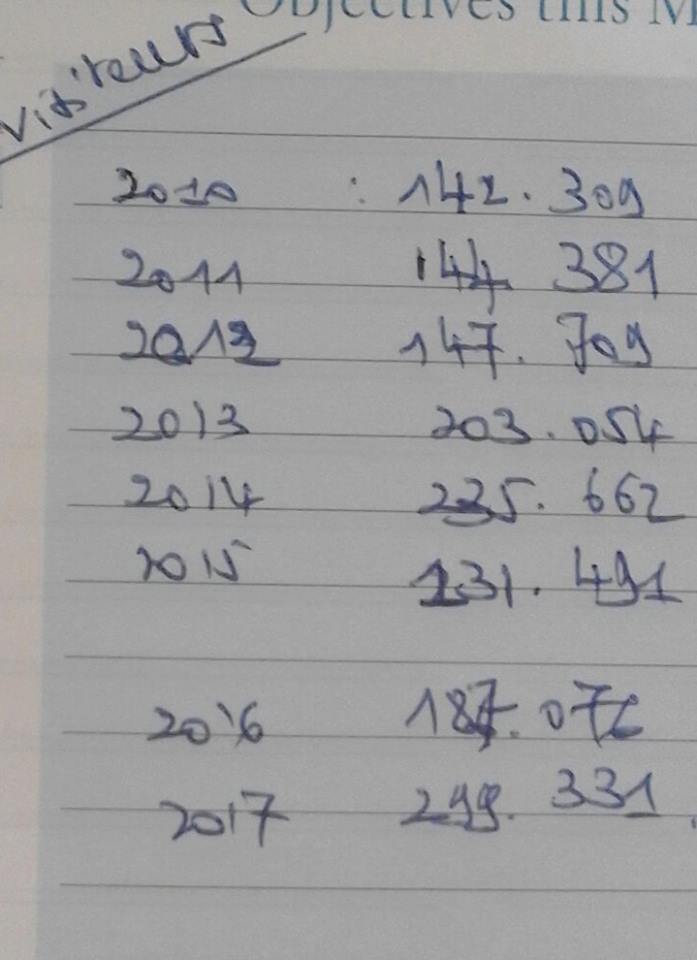 Objectives this M
Visiteurs
2010 : 142. 309
2011 144 381
2012 147. 709
2013 203. 054
2014 235. 662
2015 131. 491
2016 187. 076
2017 299. 331